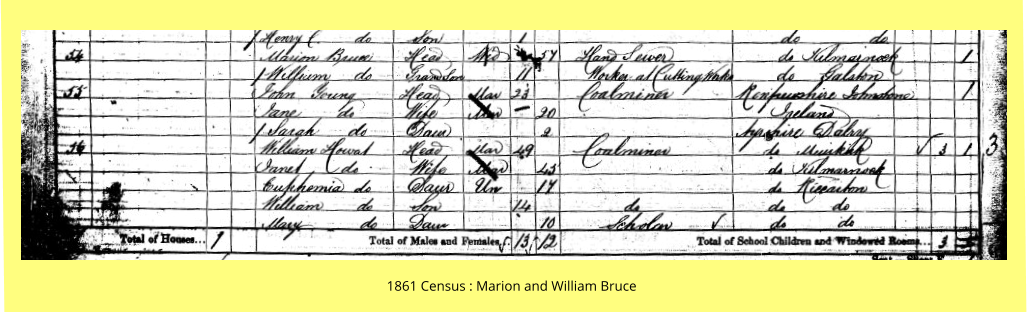 Henry C do Son 1 do do
54 Marion Bruce Head Wid 57 Hand Sewer do Kilmarnock 1
William do Grandson 11 Worker at Cutting Works do Galston
55 John Young Head Mar 23 Coalminer Renfrewshire Johnstone 1
Jane do Wife Mar 20 Ireland
Sarah do Daur 2 Ayrshire Dalry
56 William Howat Head Mar 49 Coalminer do Muirkirk 3 1
Janet do Wife Mar 45 do Kilmarnock
Euphemia do Daur Un 17 do Riccarton
William do Son 14 do do do
Mary do Daur 10 Scholar do do
Total of Houses... 7 Total of Males and Females.. 13 12 Total of School Children and Windowed Rooms... 3
3
1861 Census : Marion and William Bruce